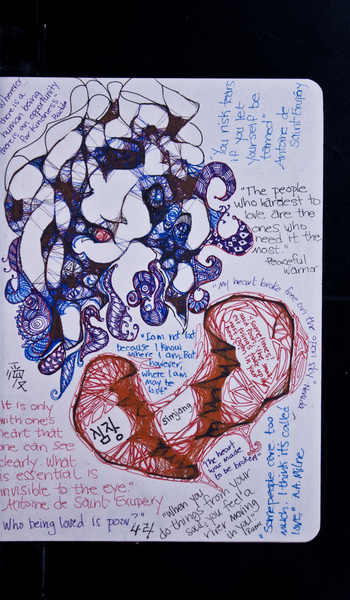 Wherever
there is a
human being
there is an opportunity
for kindness"
You risk tears
if you let
yourself be
tamed"
Antoine de
Saint Exupéry
"The people
who hardest to
love are the
ones who
need it the
most"
Peaceful
warrior
"My heart broke free on the
open sky"
"I am not lost
because I know
where I am. But
however,
where I am
may be
lost"
심장
simjang
It is only
with one's
heart that
one can see
clearly. What
is essential is
invisible to the eye"
Antoine de Saint Exupery
Who being loved is poor?"
"The heart
was made
to be broken"
"When you
do things from your
soul, you feel a
river moving
in you"
Rumi
"Some people care too
much I think its called
love" A.A. Milne